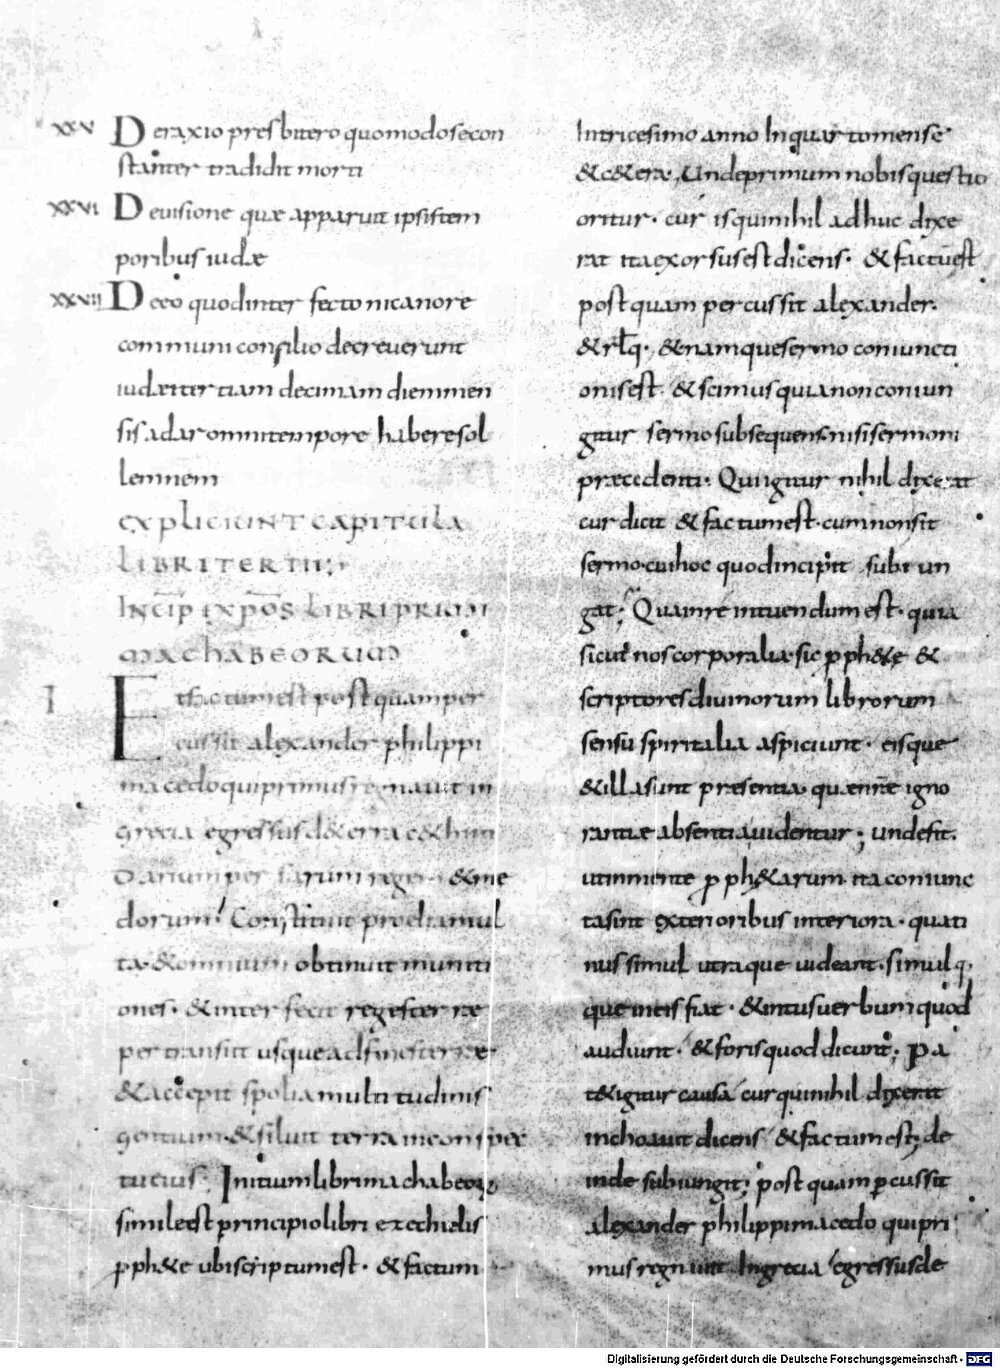 XXV De raxio presbitero quomodo se con
stanter tradidit morti
XXVI De uisione quæ apparuit ipsis tem
poribus iudæ
XXVII De eo quod interfecto nicanore
communi consilio decreuerunt
iudæi tertiam decimam diem men
sis adar omni tempore habere sol
lemnem
EXPLICIUNT CAPITULA
LIBRI TERTII;
INCIP EXPOS LIBRI PRIMI
MACHABEORUM
I Et factum est postquam per
cussit alexander philippi
macedo qui primus regnauit in
grecia egressus d& erra c&him
Darium persarum regem &me
dorum; Constituit proelia mul
ta &omnium obtinuit muniti
ones· &interfecit reges terræ
pertransiit usque ad fines terræ
&accepit spolia multitudinis
gentium· &siluit terra in conspec
tu eius; Initium libri machabeorũ
simile est principio libri ezechielis
p̱ph&e ubi scriptum est· &factum
In tricesimo anno In quarto mense
&c&era. Unde primum nobis questio
oritur· cur is qui nihil adhuc dixe
rat ita exorsus est dicens· &factũ est
postquam percussit alexander·
&rłq· &enamque sermo coniuncti
onis est· &scimus quia non coniun
gitur sermo subsequens nisi sermoni
præcedenti· Qui igitur nihil dixerat
cur dicit &factum est· cum non sit
sermo cui hoc quod incipit subiun
gat; Qua in re intuendum est· quia
sicut nos corporalia sic p̱ph&e &
scriptores diuinorum librorum
sensu spiritalia aspiciunt· eisque
&illa sunt presentia quæ nr̃e igno
rantiæ absentia uidentur; unde fit·
ut in mente p̱ph&arum ita coniunc
ta sint exterioribus interiora· quati
nus simul utraque uideant· simulq·
que in eis fiat· &intus uerbum quod
audiunt· &foris quod dicunt; Pa
t& igitur causa cur qui nihil dixerat
inchoauit dicens &factum est; de
inde subiungit; postquam p̱cussit
alexander philippi macedo qui pri
mus regnauit In grecia egressus de
Digitalisierung gefördert durch die Deutsche Forschungsgemeinschaft · DFG